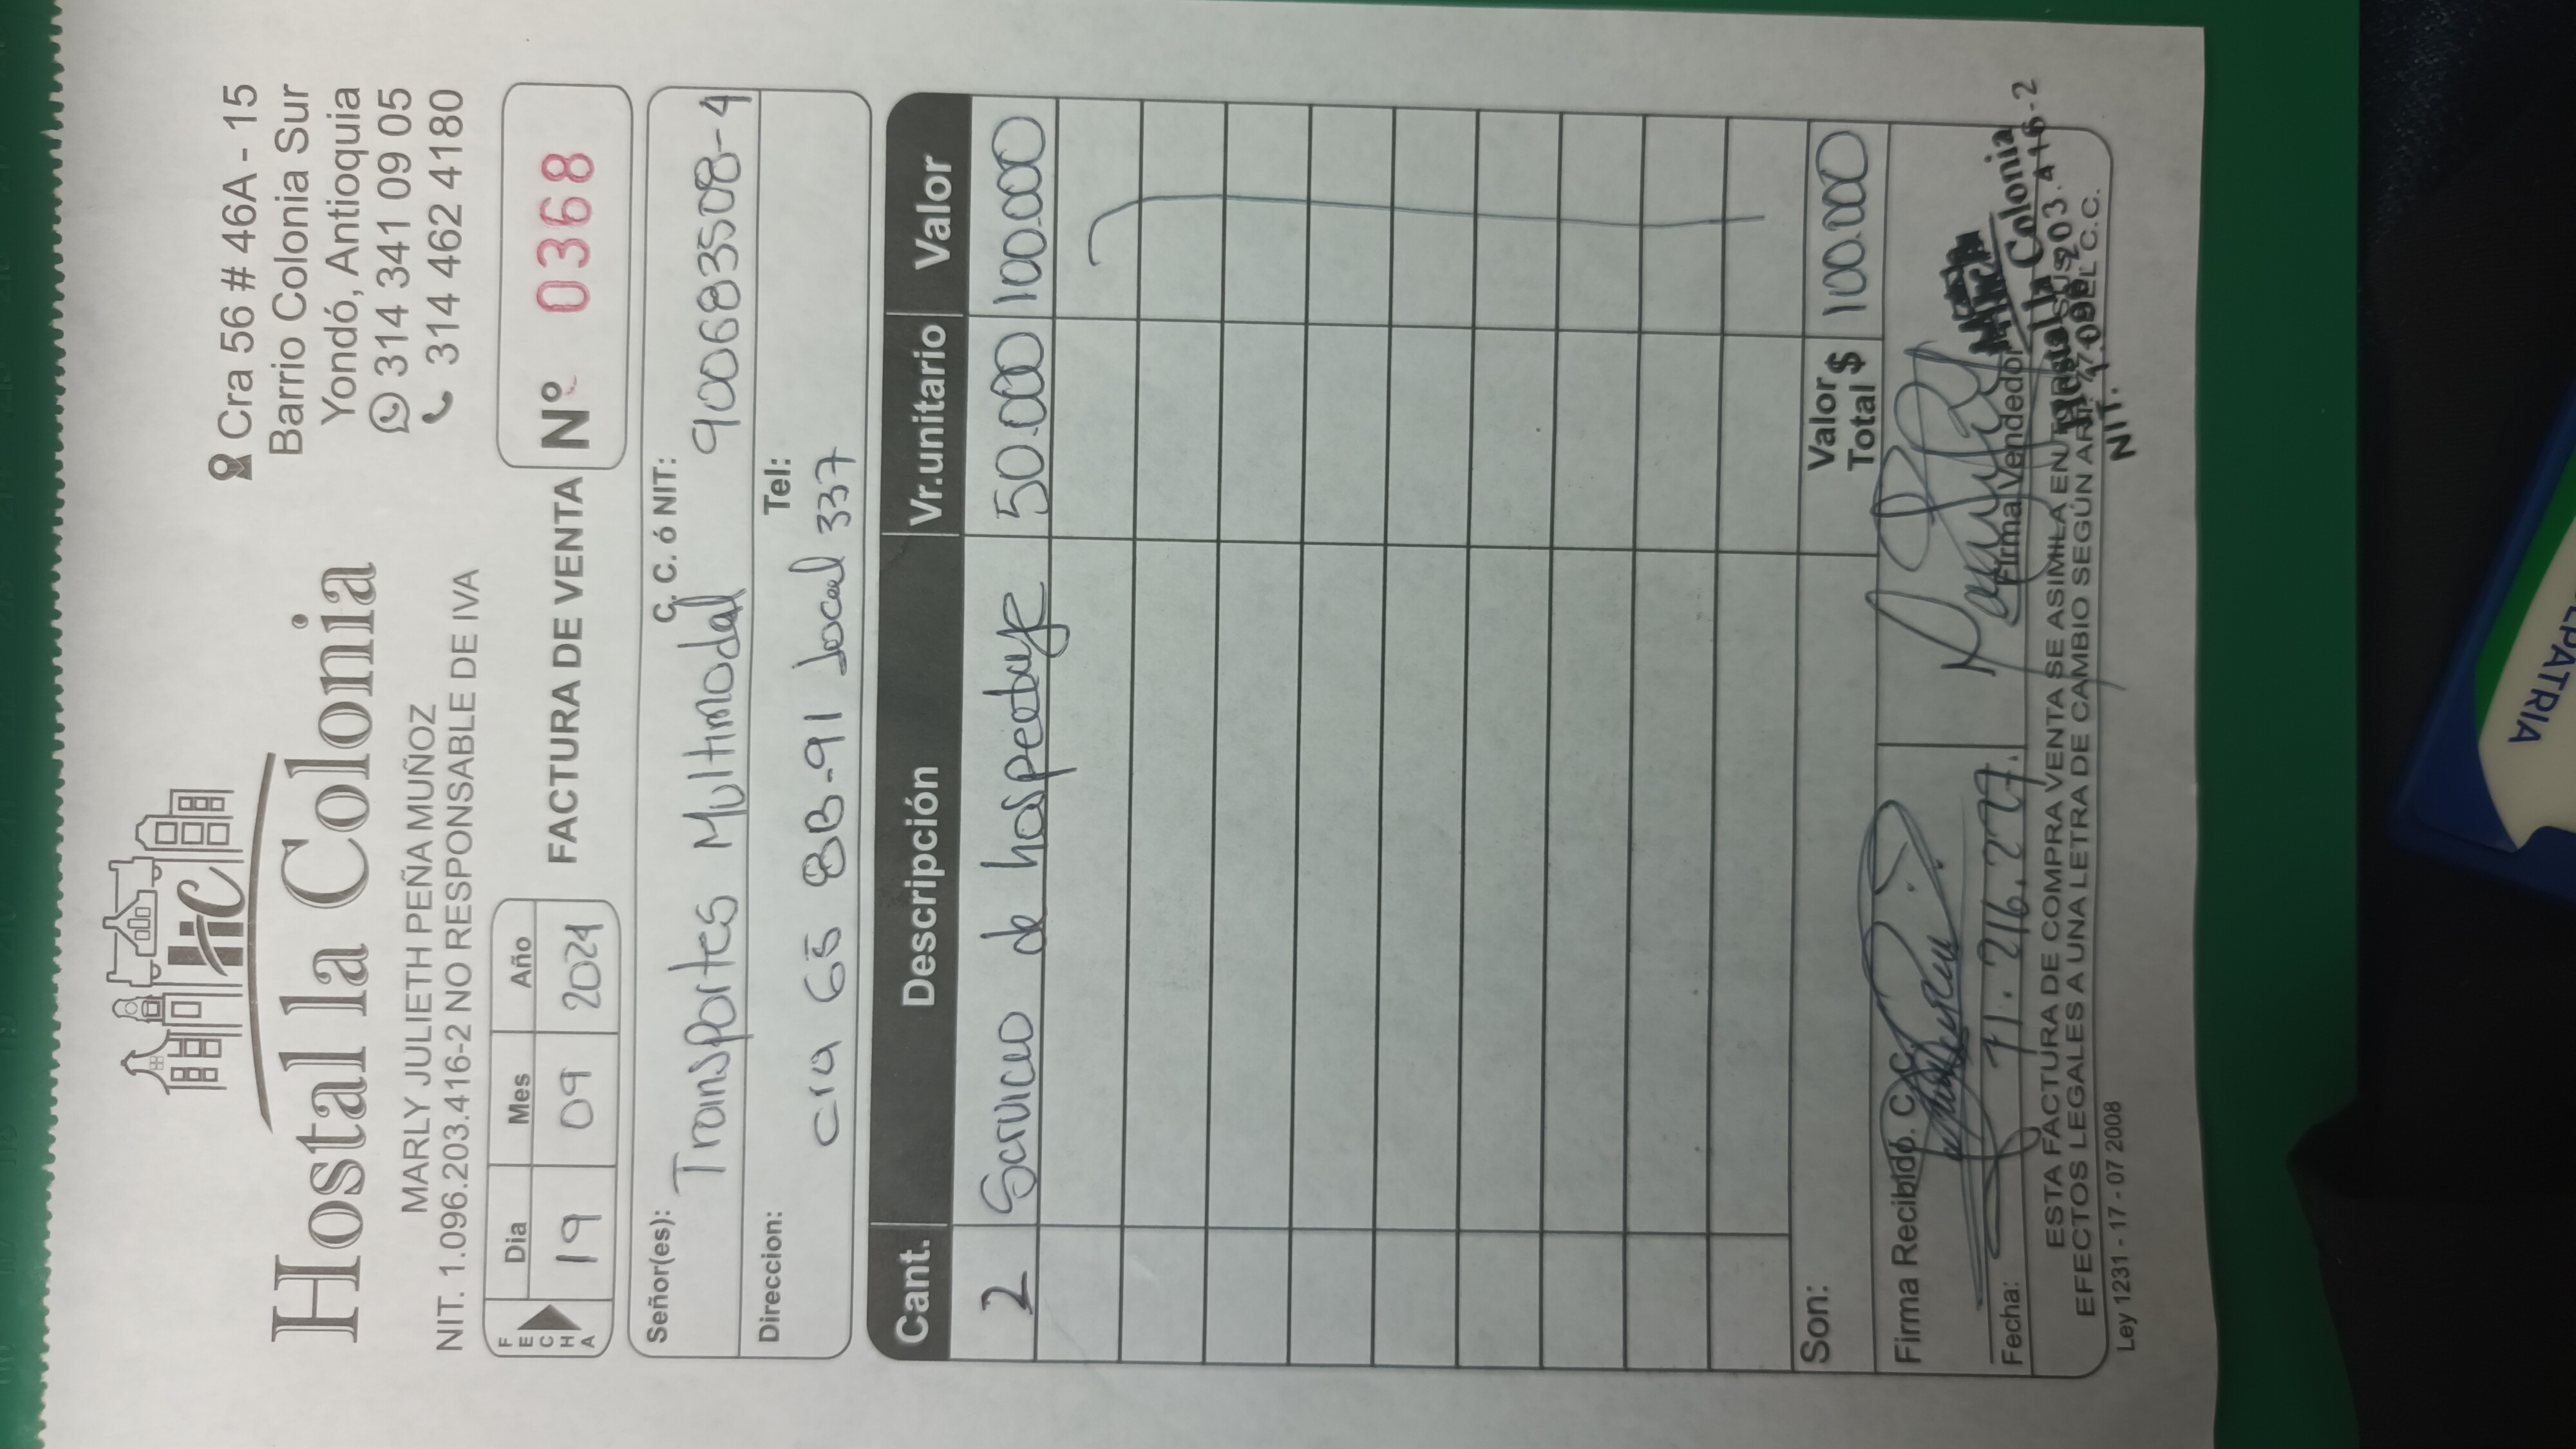 HC
Hostal la Colonia
MARLY JULIETH PEÑA MUÑOZ
NIT. 1.096.203.416-2 NO RESPONSABLE DE IVA
Cra 56 # 46A - 15
Barrio Colonia Sur
Yondó, Antioquia
314 341 09 05
314 462 4180
FECHA Dia Mes Año
19 09 2024
FACTURA DE VENTA Nº 0368
Señor(es): Transportes Multimodal C. C. ó NIT: 900683508-4
Direccion: cra 65 8B-91 local 337 Tel:
Cant. Descripción Vr.unitario Valor
2 Servicio de hospedaje 50.000 100.000
Son: Valor Total $ 100.000
Firma Recibido. C.C.
71.216.227.
Fecha:
Firma Vendedor
Hostal la Colonia
NIT. 203.416-2
ESTA FACTURA DE COMPRA VENTA SE ASIMILA EN SUS
EFECTOS LEGALES A UNA LETRA DE CAMBIO SEGÚN DEL C.C.
Ley 1231 - 17 - 07 2008
EPATRIA